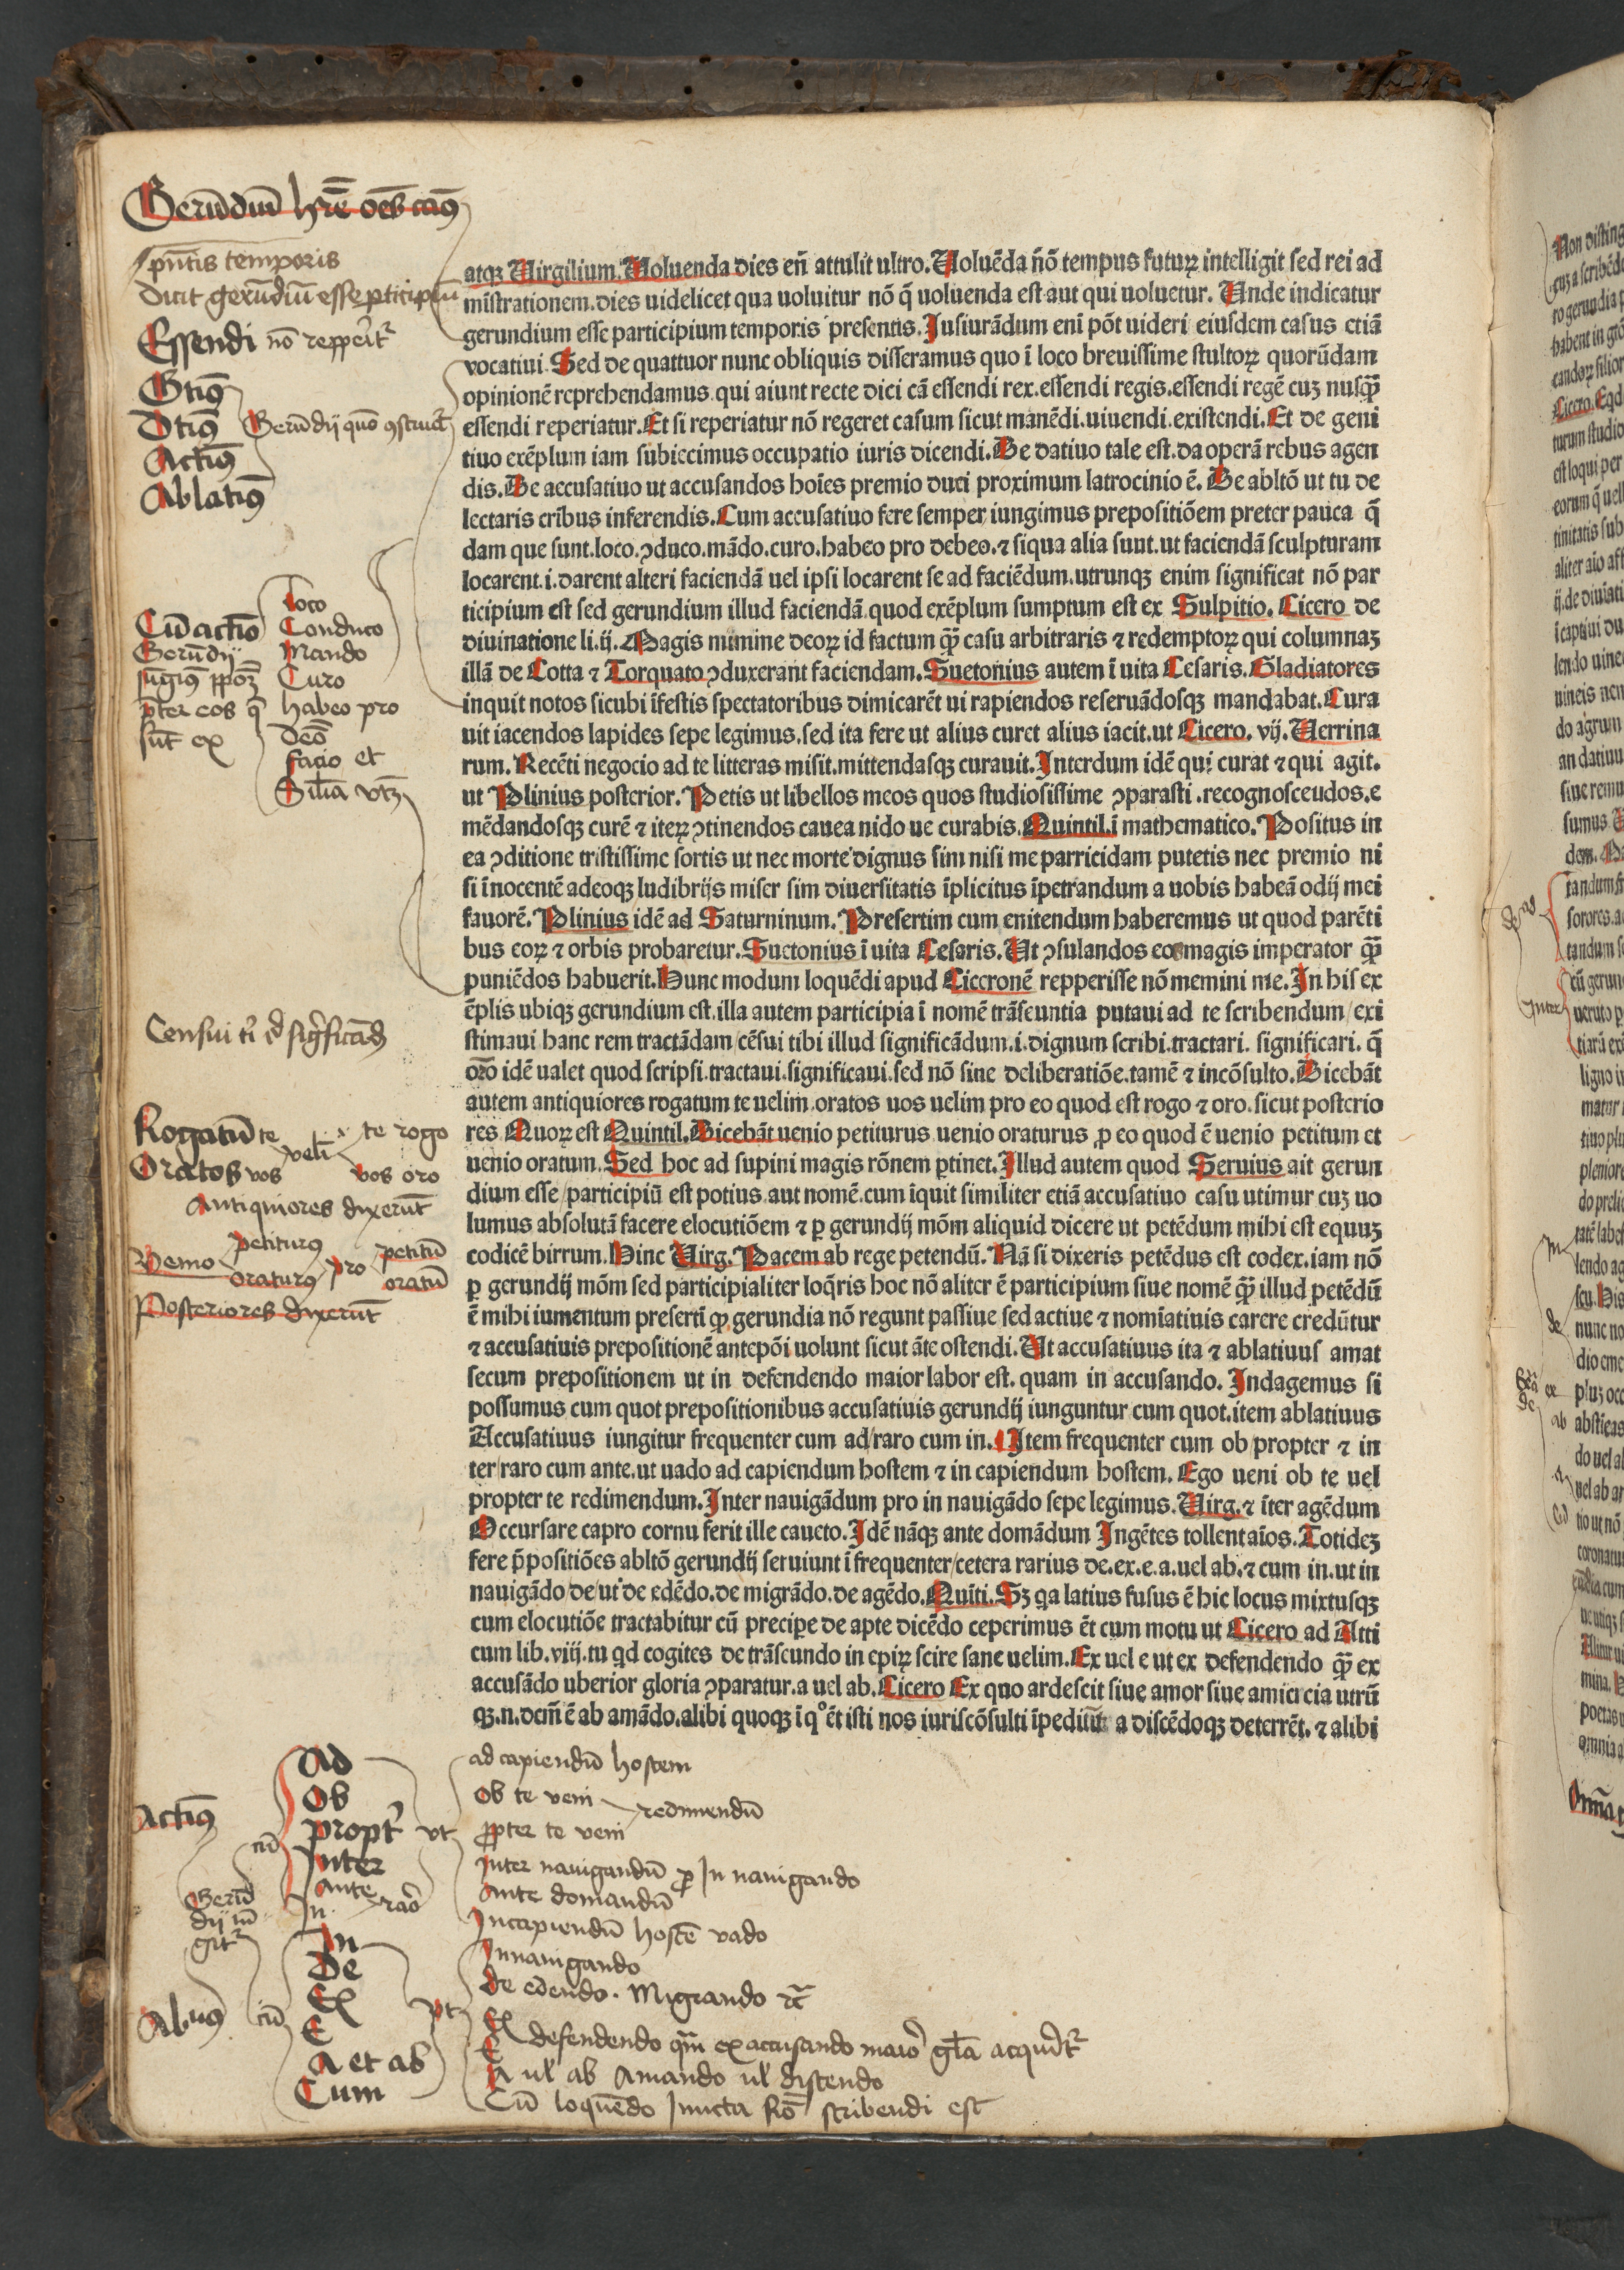 Gerūdiū hr̄e oēs casus
pn̄tis temporis
dicit gerūdiū esse pticipiū
Essendi nō repperit᷑
Gtiuꝰ
Dtiuꝰ Gerūdij quō ꝯstruit᷑
Actiuꝰ
Ablatiuꝰ
atqꝫ Uirgilium. Uoluenda dies en̄ attulit ultro. Uoluēda n̄ō tempus futuꝝ intelligit sed rei ad
mistrationem. dies uidelicet qua uoluitur nō q̄ uoluenda est aut qui uoluetur. Unde indicatur
gerundium esse participium temporis presentis. Iusiurādum eni pōt uideri eiusdem casus etiā
vocatiui. Sed de quattuor nunc obliquis disseramus quo ī loco breuissime stultoꝝ quorūdam
opinionē reprehendamus. qui aiunt recte dici cā essendi rex. essendi regis. essendi regē cuꝫ nusqꝫ̄
essendi reperiatur. Et si reperiatur nō regeret casum sicut manēdi. uiuendi. existendi. Et de geni
tiuo exēplum iam subiecimus occupatio iuris dicendi. De datiuo tale est. da operā rebus agen
dis. De accusatiuo ut accusandos hoīes premio duci proximum latrocinio ē. De abltō ut tu de
lectaris crībus inferendis. Cum accusatiuo fere semper iungimus prepositiōem preter pauca q̄
dam que sunt. loco. ꝯduco. mādo. curo. habeo pro debeo. ⁊ siqua alia sunt. ut faciendā sculpturam
locarent. i. darent alteri faciendā uel ipsi locarent se ad faciēdum. utrunqꝫ enim significat nō par
ticipium est sed gerundium illud faciendā. quod exēplum sumptum est ex Sulpitio. Cicero de
diuinatione li. ij. Magis mimine deoꝝ id factum qꝫ̄ casu arbitraris ⁊ redemptoꝝ qui columnaꝫ
illā de Cotta ⁊ Torquato ꝯduxerant faciendam. Suetonius autem ī uita Cesaris. Gladiatores
inquit notos sicubi īfestis spectatoribus dimicarēt ui rapiendos reseruādosqꝫ mandabat. Cura
uit iacendos lapides sepe legimus. sed ita fere ut alius curet alius iacit. ut Cicero. vij. Uerrina
rum. Recēti negocio ad te litteras misit. mittendasqꝫ curauit. Interdum idē qui curat ⁊ qui agit.
ut Plinius posterior. Petis ut libellos meos quos studiosissime ꝯparasti. recognosceudos. e
mēdandosqꝫ curē ⁊ iteꝝ ꝯtinendos cauea nido ue curabis. Quintil. ī mathematico. Positus in
ea ꝯditione tristissime sortis ut nec morte dignus sim nisi me parricidam putetis nec premio ni
si īnocentē adeoqꝫ ludibrijs miser sim diuersitatis īplicitus īpetrandum a uobis habeā odij mei
fauorē. Plinius idē ad Saturninum. Presertim cum enitendum haberemus ut quod parēti
bus eoꝝ ⁊ orbis probaretur. Suetonius ī uita Cesaris. Ut ꝯsulandos eos magis imperator qꝫ̄
puniēdos habuerit. Hunc modum loquēdi apud Ciceronē repperisse nō memini me. In his ex
ēplis ubiqꝫ gerundium est. illa autem participia ī nomē trāseuntia putaui ad te scribendum / exi
stimaui hanc rem tractādam / cēsui tibi illud significādum. i. dignum scribi. tractari. significari. q̄
oro idē ualet quod scripsi. tractaui. significaui. sed nō sine deliberatiōe. tamē ⁊ incōsulto. Dicebāt
autem antiquiores rogatum te uelim. oratos uos uelim pro eo quod est rogo ⁊ oro. sicut posterio
res Quoꝝ est Quintil. Dicebāt uenio petiturus uenio oraturus ꝓ eo quod ē uenio petitum et
uenio oratum. Sed hoc ad supini magis rōnem ꝑtinet. Illud autem quod Seruius ait gerun
dium esse / participiū est potius aut nomē. cum īquit similiter etiā accusatiuo casu utimur cuꝫ uo
lumus absolutā facere elocutiōem ⁊ ꝑ gerundij mōm aliquid dicere ut petēdum mihi est equuꝫ
codicē birrum. Hinc Uirg. Pacem ab rege petendū. Nā si dixeris petēdus est codex. iam nō
ꝑ gerundij mōm sed participialiter loq̄ris hoc nō aliter ē participium siue nomē qꝫ̄ illud petēdū
ē mihi iumentum presertī ꝙ gerundia nō regunt passiue sed actiue ⁊ nomīatiuis carere credūtur
⁊ accusatiuis prepositionē antepōi uolunt sicut āte ostendi. Ut accusatiuus ita ⁊ ablatiuus amat
secum prepositionem ut in defendendo maior labor est. quam in accusando. Indagemus si
possumus cum quot prepositionibus accusatiuis gerundij iunguntur cum quot. item ablatiuus
Accusatiuus iungitur frequenter cum ad / raro cum in. Item frequenter cum ob / propter ⁊ in
ter / raro cum ante. ut uado ad capiendum hostem ⁊ in capiendum hostem. Ego ueni ob te uel
propter te redimendum. Inter nauigādum pro in nauigādo sepe legimus. Uirg. ⁊ īter agēdum
Occursare capro cornu ferit ille caueto. Idē nāqꝫ ante domādum Ingētes tollent aīos. Totideꝫ
fere p̄positiōes abltō gerundij seruiunt ī frequenter / cetera rarius de. ex. e. a. uel ab. ⁊ cum in. ut in
nauigādo / de / ut de edēdo. de migrādo. de agēdo. Quīti. Sꝫ qa latius fusus ē hic locus mixtusqꝫ
cum elocutiōe tractabitur cū precipe de apte dicēdo ceperimus ēt cum motu ut Cicero ad Atti
cum lib. viij. tu qd cogites de trāseundo in epiꝝ scire sane uelim. Ex uel e ut ex defendendo qꝫ̄ ex
accusādo uberior gloria ꝯparatur. a uel ab. Cicero Ex quo ardescit siue amor siue amicicia utrū
qꝫ. n. dcm̄ ē ab amādo. alibi quoqꝫ ī qͦ ēt isti nos iuriscōsulti īpediūt a discēdoqꝫ deterrēt. ⁊ alibi
Cū actiō
Gerūdij
iūgimꝰ ppoꝝ
p̄ter eos q̄
sūt ex
loco
Conduco
Mando
Curo
habeo pro
debeo
facio et
Silia vtꝫ
Censui ti' id significādū
Rogatū te
Oratos vos
veli
te rogo
vos oro
Antiquiores dixerūt
Venio
petiturꝰ
oraturꝰ
pro
petitū
oratū
Posteriores dixerūt
Actiuꝰ
cū
Gerū
dij iū
git᷑
Abltiuꝰ
cū
Ad
Ob
propt'
Inter
Ante
In raro
vt
In
De
Ex
E
A et ab
Cum
vt
ad capiendū hostem
ob te veni
redimendū
propter te veni
Inter nauigandū ꝓ In nauigando
Ante domandū
In capiendū hostē vado
In nauigando
de edendo. Migrando ⁊c̄
Ex
E
defendendo qm̄ ex accusando maior gl̄a acquirit᷑
A ul' ab Amando ul' discendo
Cū loquēdo iuncta rō scribendi est